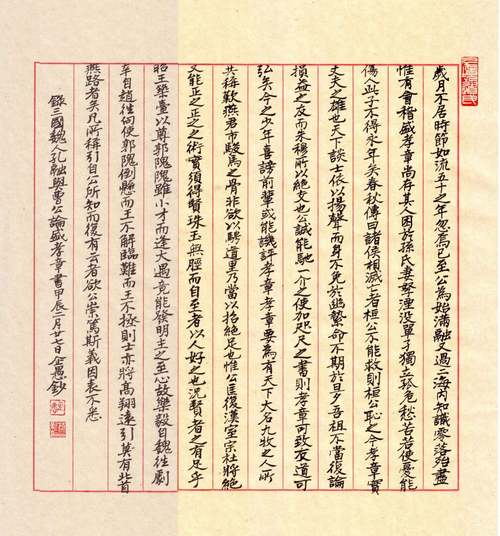 歲月不居時節如流五十之年忽焉已至公為始滿融又過二海內知識零落殆盡
惟有會稽盛孝章尚存其人困於孫氏妻孥湮沒單孑獨立孤危愁苦若使憂能
傷人此子不得永年矣春秋傳曰諸侯相滅亡者桓公不能救則桓公恥之今孝章實
丈夫之雄也天下談士依以揚聲而身不免於幽縶命不期於旦夕吾祖不當復論
損益之友而朱穆所以絕交也公誠能馳一介之使加咫尺之書則孝章可致友道可
弘矣今之少年喜謗前輩或能譏評孝章孝章要為有天下大名九牧之人所
共稱歎燕君市駿馬之骨非欲以騁道里乃當以招絕足也惟公匡復漢室宗社將絕
又能正之正之之術實須得賢珠玉無脛而自至者以人好之也況賢者之有足乎
昭王築臺以尊郭隗隗雖小才而逢大遇竟能發明主之至心故樂毅自魏往劇
辛自趙往向使郭隗倒懸而王不解臨難而王不拯則士亦將高翔遠引莫有北首
燕路者矣凡所稱引自公所知而復有云者欲公崇篤斯義因表不悉
錄三國魏人孔融與曹公論盛孝章書甲辰二月廿七日企愚鈔